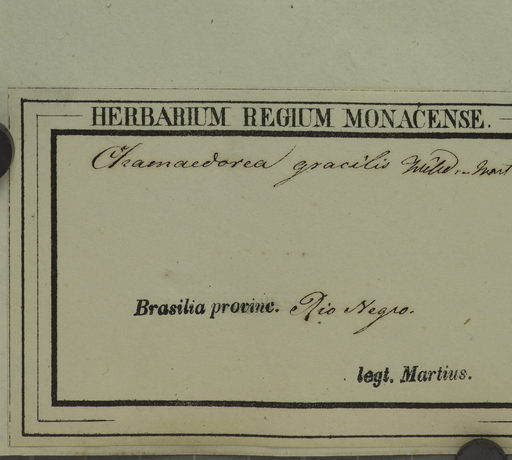 HERBARIUM REGIUM MONACENSE.
Chamaedorea gracilis Willd
Brasilia provinc. Rio Negro.
legt. Martius.